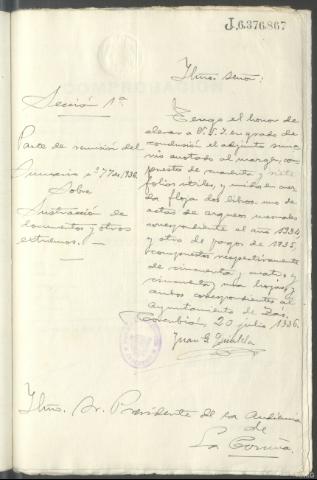 J.6.376.867
Iltmo. Señor:
Sección 1ª
Parte de remisión del
Sumario nº 77 de 1936
Sobre
Sustracción de
documentos y otros
extremos.—
Tengo el honor de
elevar a V.S.I. en grado de
conclusión el adjunto suma
rio anotado al margen, com
puesto de cuarenta y siete
folios útiles, y unida en cuer
da floja dos libros, uno de
actas de arqueos mensuales
correspondiente al año 1934
y otro de pagos de 1935,
compuestos respectivamente
de cincuenta y cuatro y
cincuenta y una hojas, y
ambos correspondientes al
Ayuntamiento de Zás.
Corcubión, 20 julio 1936.
Juan G.
Iltmo. Sr. Presidente de la Audiencia
de
La Coruña.